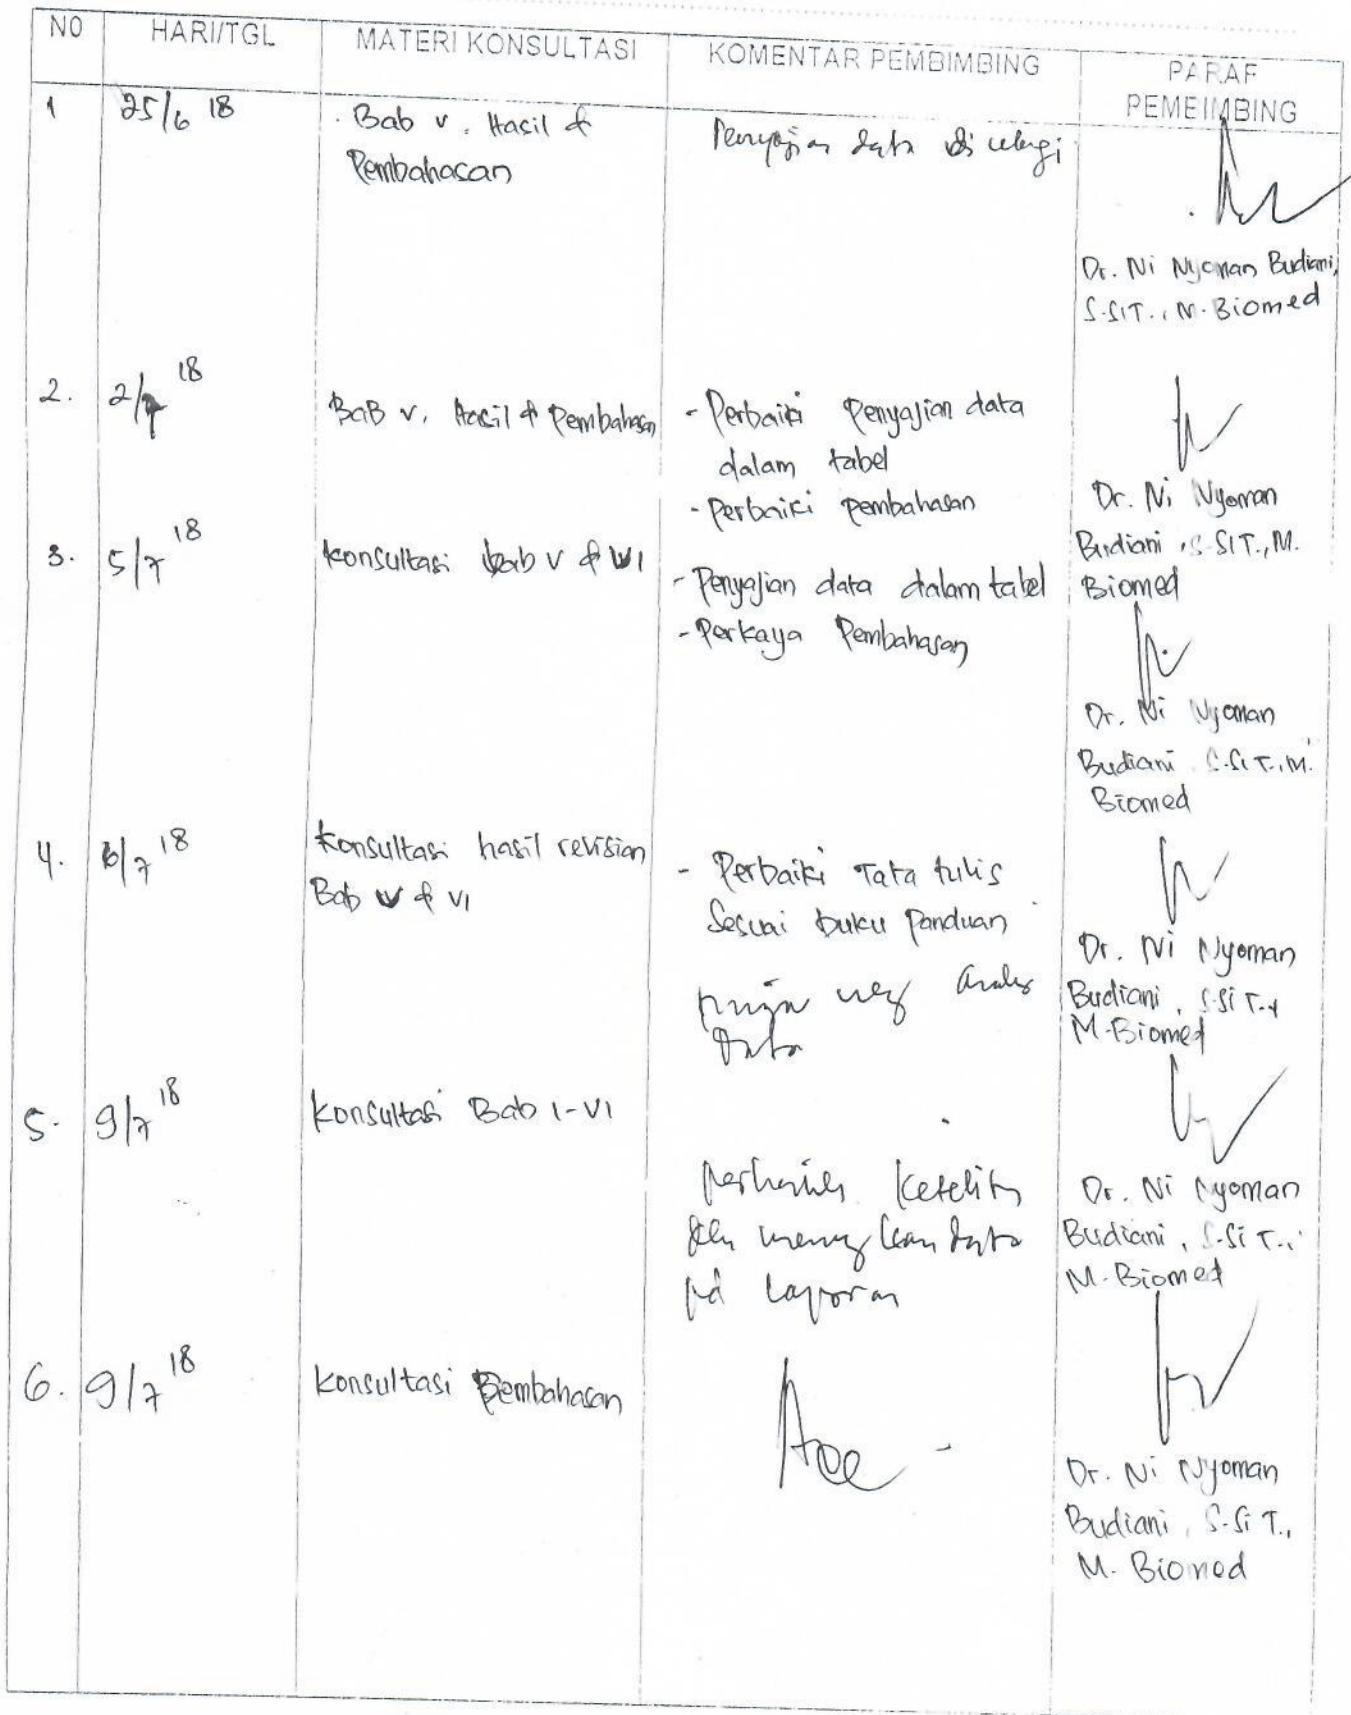 NO HARI/TGL MATERI KONSULTASI KOMENTAR PEMBIMBING PARAF
PEMBIMBING
1 25/6 18 Bab V. Hasil & Penyajian data di
Pembahasan
Dr. Ni Nyoman Budiani,
S.SiT., M.Biomed
2. 2/7 18 Bab V. Hasil & Pembahasan - Perbaiki Penyajian data
dalam tabel
- Perbaiki pembahasan
Dr. Ni Nyoman
Budiani, S.SiT., M.
Biomed
3. 5/7 18 Konsultasi bab V & VI - Penyajian data dalam tabel
- Perkaya Pembahasan
Dr. Ni Nyoman
Budiani, S.SiT., M.
Biomed
4. 6/7 18 Konsultasi hasil revisian - Perbaiki Tata tulis
Bab V & VI Sesuai buku Panduan
data
Dr. Ni Nyoman
Budiani, S.SiT.,
M.Biomed
5. 9/7 18 Konsultasi Bab I-VI
data
pd laporan
Dr. Ni Nyoman
Budiani, S.SiT.,
M.Biomed
6. 9/7 18 Konsultasi Pembahasan Acc
Dr. Ni Nyoman
Budiani, S.SiT.,
M. Biomed